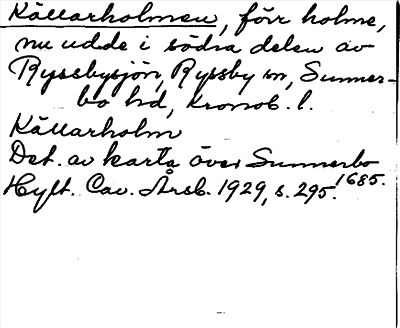 Källarholmen, förr holme,
nu udde i södra delen av
Ryssbysjön, Ryssby sn, Sunner-
bo hd, Kronob. l.
Källarholm
Det. av karta över Sunnerbo
1685.
Hylt. Cav. Årsb. 1929, s. 295.